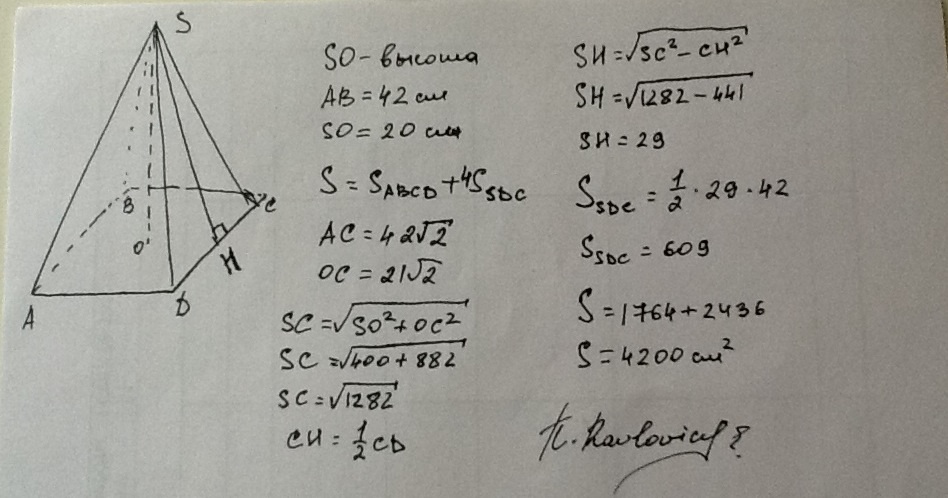 S
A
B
C
D
O
H
SO - высота
AB = 42 см
SO = 20 см
S = S_ABCD + 4S_SDC
AC = 42√2
OC = 21√2
SC = √(SO² + OC²)
SC = √(400 + 882)
SC = √1282
CH = 1/2 CD
SH = √(SC² - CH²)
SH = √(1282 - 441)
SH = 29
S_SDC = 1/2 · 29 · 42
S_SDC = 609
S = 1764 + 2436
S = 4200 см²